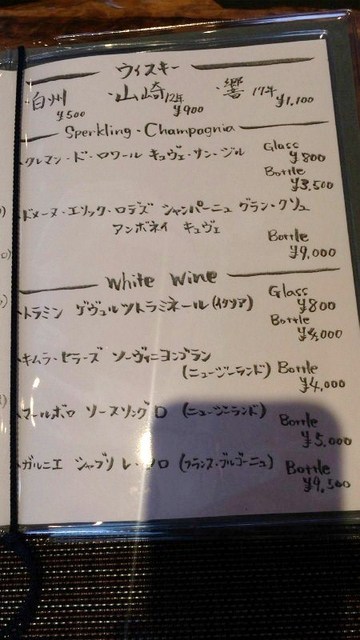 ウィスキー
・白州 ・山崎12年 ・響 17年
¥500 ¥900 ¥1,100
Sperkling・Champagnia
クレマン・ド・ロワール キュヴェ・サン・ジル Glass ¥800
Bottle ¥3,500
ドメーヌ・エリック・ロデズ シャンパーニュ グラン・クリュ
アンボネイ キュヴェ Bottle ¥9,000
White Wine
トラミン ゲヴュルツトラミネール (イタリア) Glass ¥800
Bottle
キムラ・セラーズ ソーヴィニヨンブラン
(ニュージーランド) Bottle ¥4,000
マールボロ (ニュージーランド) Bottle ¥5,000
ガルニエ シャブリ (フランス・ブルゴーニュ) Bottle ¥9,500